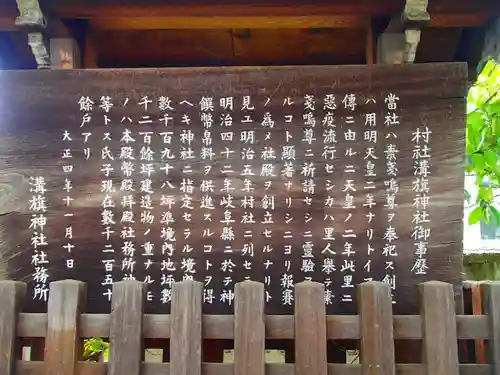 村社溝旗神社御事歴
當社ハ素戔嗚尊ヲ奉祀ス創立
ハ用明天皇二年ナリトイフ社
傳ニ由ルニ天皇ノ二年此里ニ
惡疫流行セシカハ里人擧テ素
戔嗚尊ニ祈請セシニ靈驗ヲ蒙
ルコト顯著ナリシニヨリ報賽
ノ爲メ社殿ヲ創立セルナリト
見ユ明治五年村社ニ列セラレ
明治四十二年岐阜縣ニ於テ神
饌幣帛料ヲ供進スルコトヲ得
ヘキ神社ニ指定セラル境内
数千百九十八坪準境内地坪數
千二百餘坪建造物ノ重ナルモ
ノハ本殿幣殿拜殿社務所神
等トス氏子現在數千二百五十
餘戸アリ
大正四年十一月十日
溝旗神社社務所